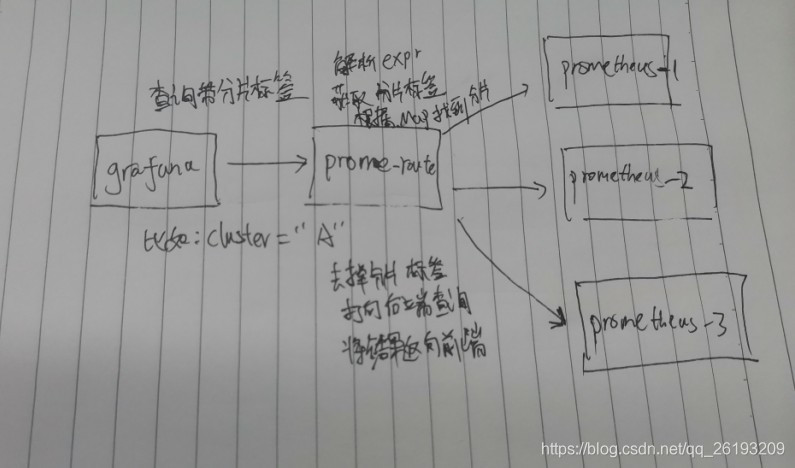 查询带分片标签
grafana
比如:cluster="A"
解析expr
获取分片标签
根据Map找到分片
prome-route
去掉分片标签
打向后端查询
将结果返向前端
prometheus-1
prometheus-2
prometheus-3
https://blog.csdn.net/qq_26193209